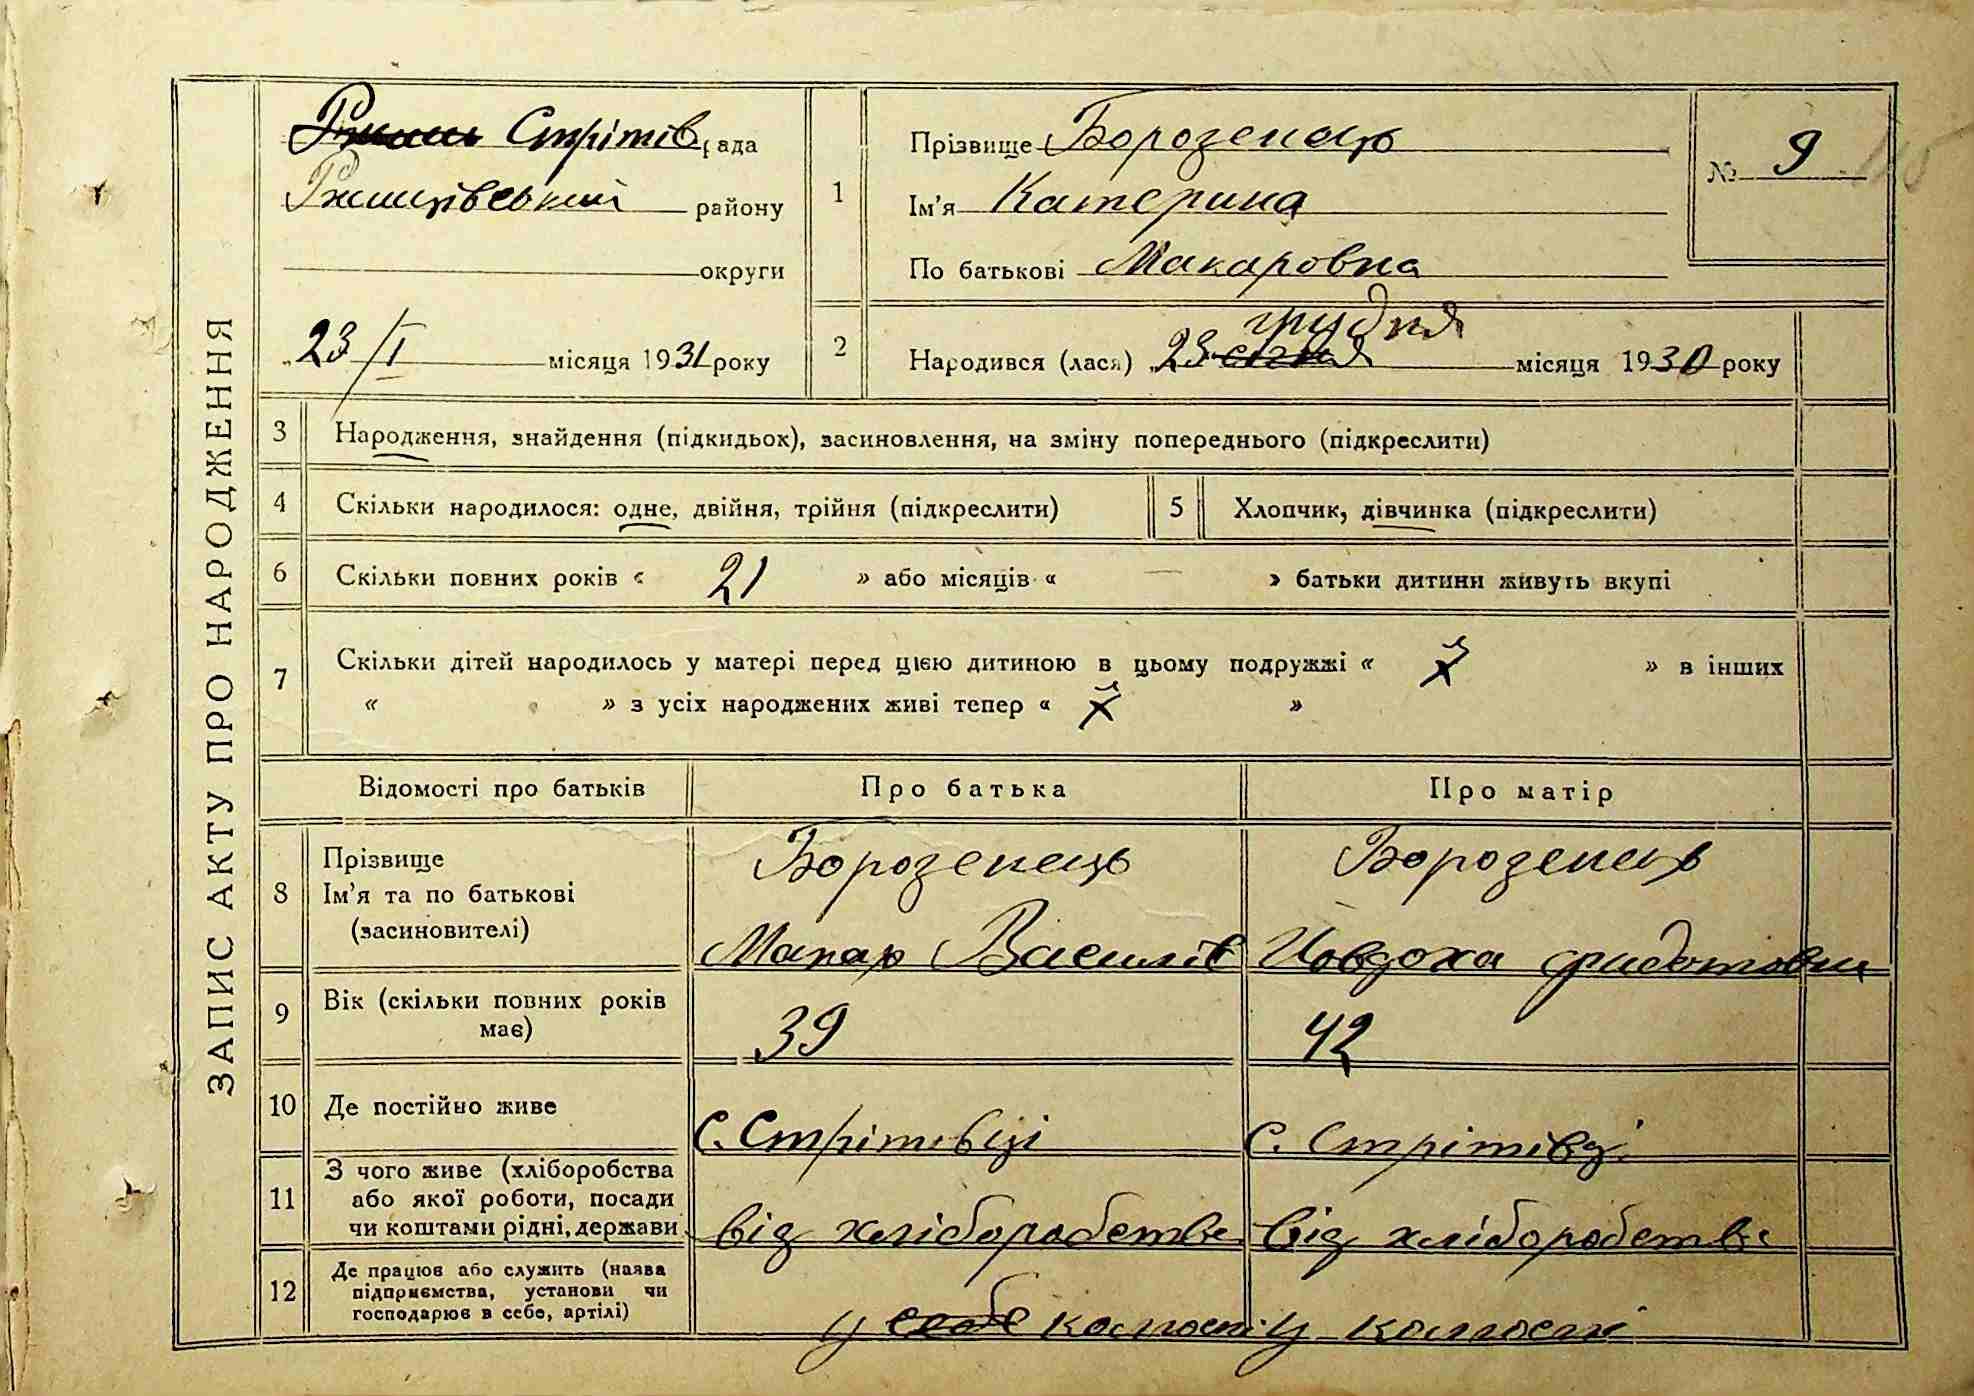 ЗАПИС АКТУ ПРО НАРОДЖЕННЯ
Стрітів рада
Ржищівський району
округи
„23/I місяця 1931 року
1
Прізвище Борозенець
Ім'я Катерина
По батькові Макаровна
№ 9
грудня
2 Народився (лася) „23 січня місяця 1930 року
3 Народження, знайдення (підкидьок), засиновлення, на зміну попереднього (підкреслити)
4 Скільки народилося: одне, двійня, трійня (підкреслити) 5 Хлопчик, дівчинка (підкреслити)
6 Скільки повних років « 21 » або місяців « — » батьки дитини живуть вкупі
7 Скільки дітей народилось у матері перед цією дитиною в цьому подружжі « » в інших
« » з усіх народжених живі тепер « »
Відомості про батьків Про батька Про матір
8 Прізвище Борозенець Борозенець
Ім'я та по батькові
(засновителі) Макар Василів Йовдоха Федотовна
9 Вік (скільки повних років має) 39 42
10 Де постійно живе С. Стрітівці С. Стрітівці
11 З чого живе (хліборобства
або якої роботи, посади
чи коштами рідні, держави від хліборобства від хліборобства
12 Де працює або служить (назва
підприємства, установи чи
господарює в себе, артілі) у себе колгоспі у колгоспі